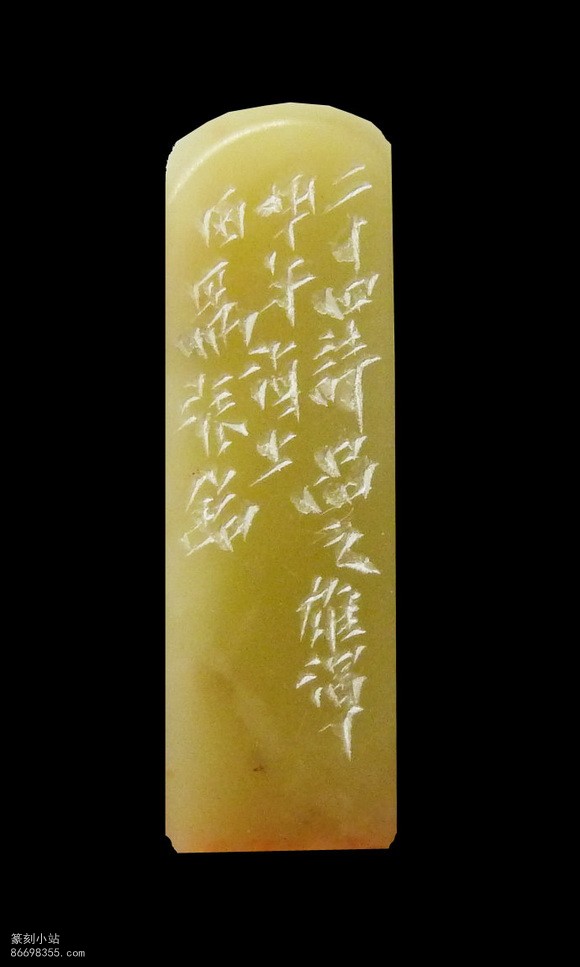 二十四詩品之雄渾
甲午河上
張銘
篆刻小站
86698355.com